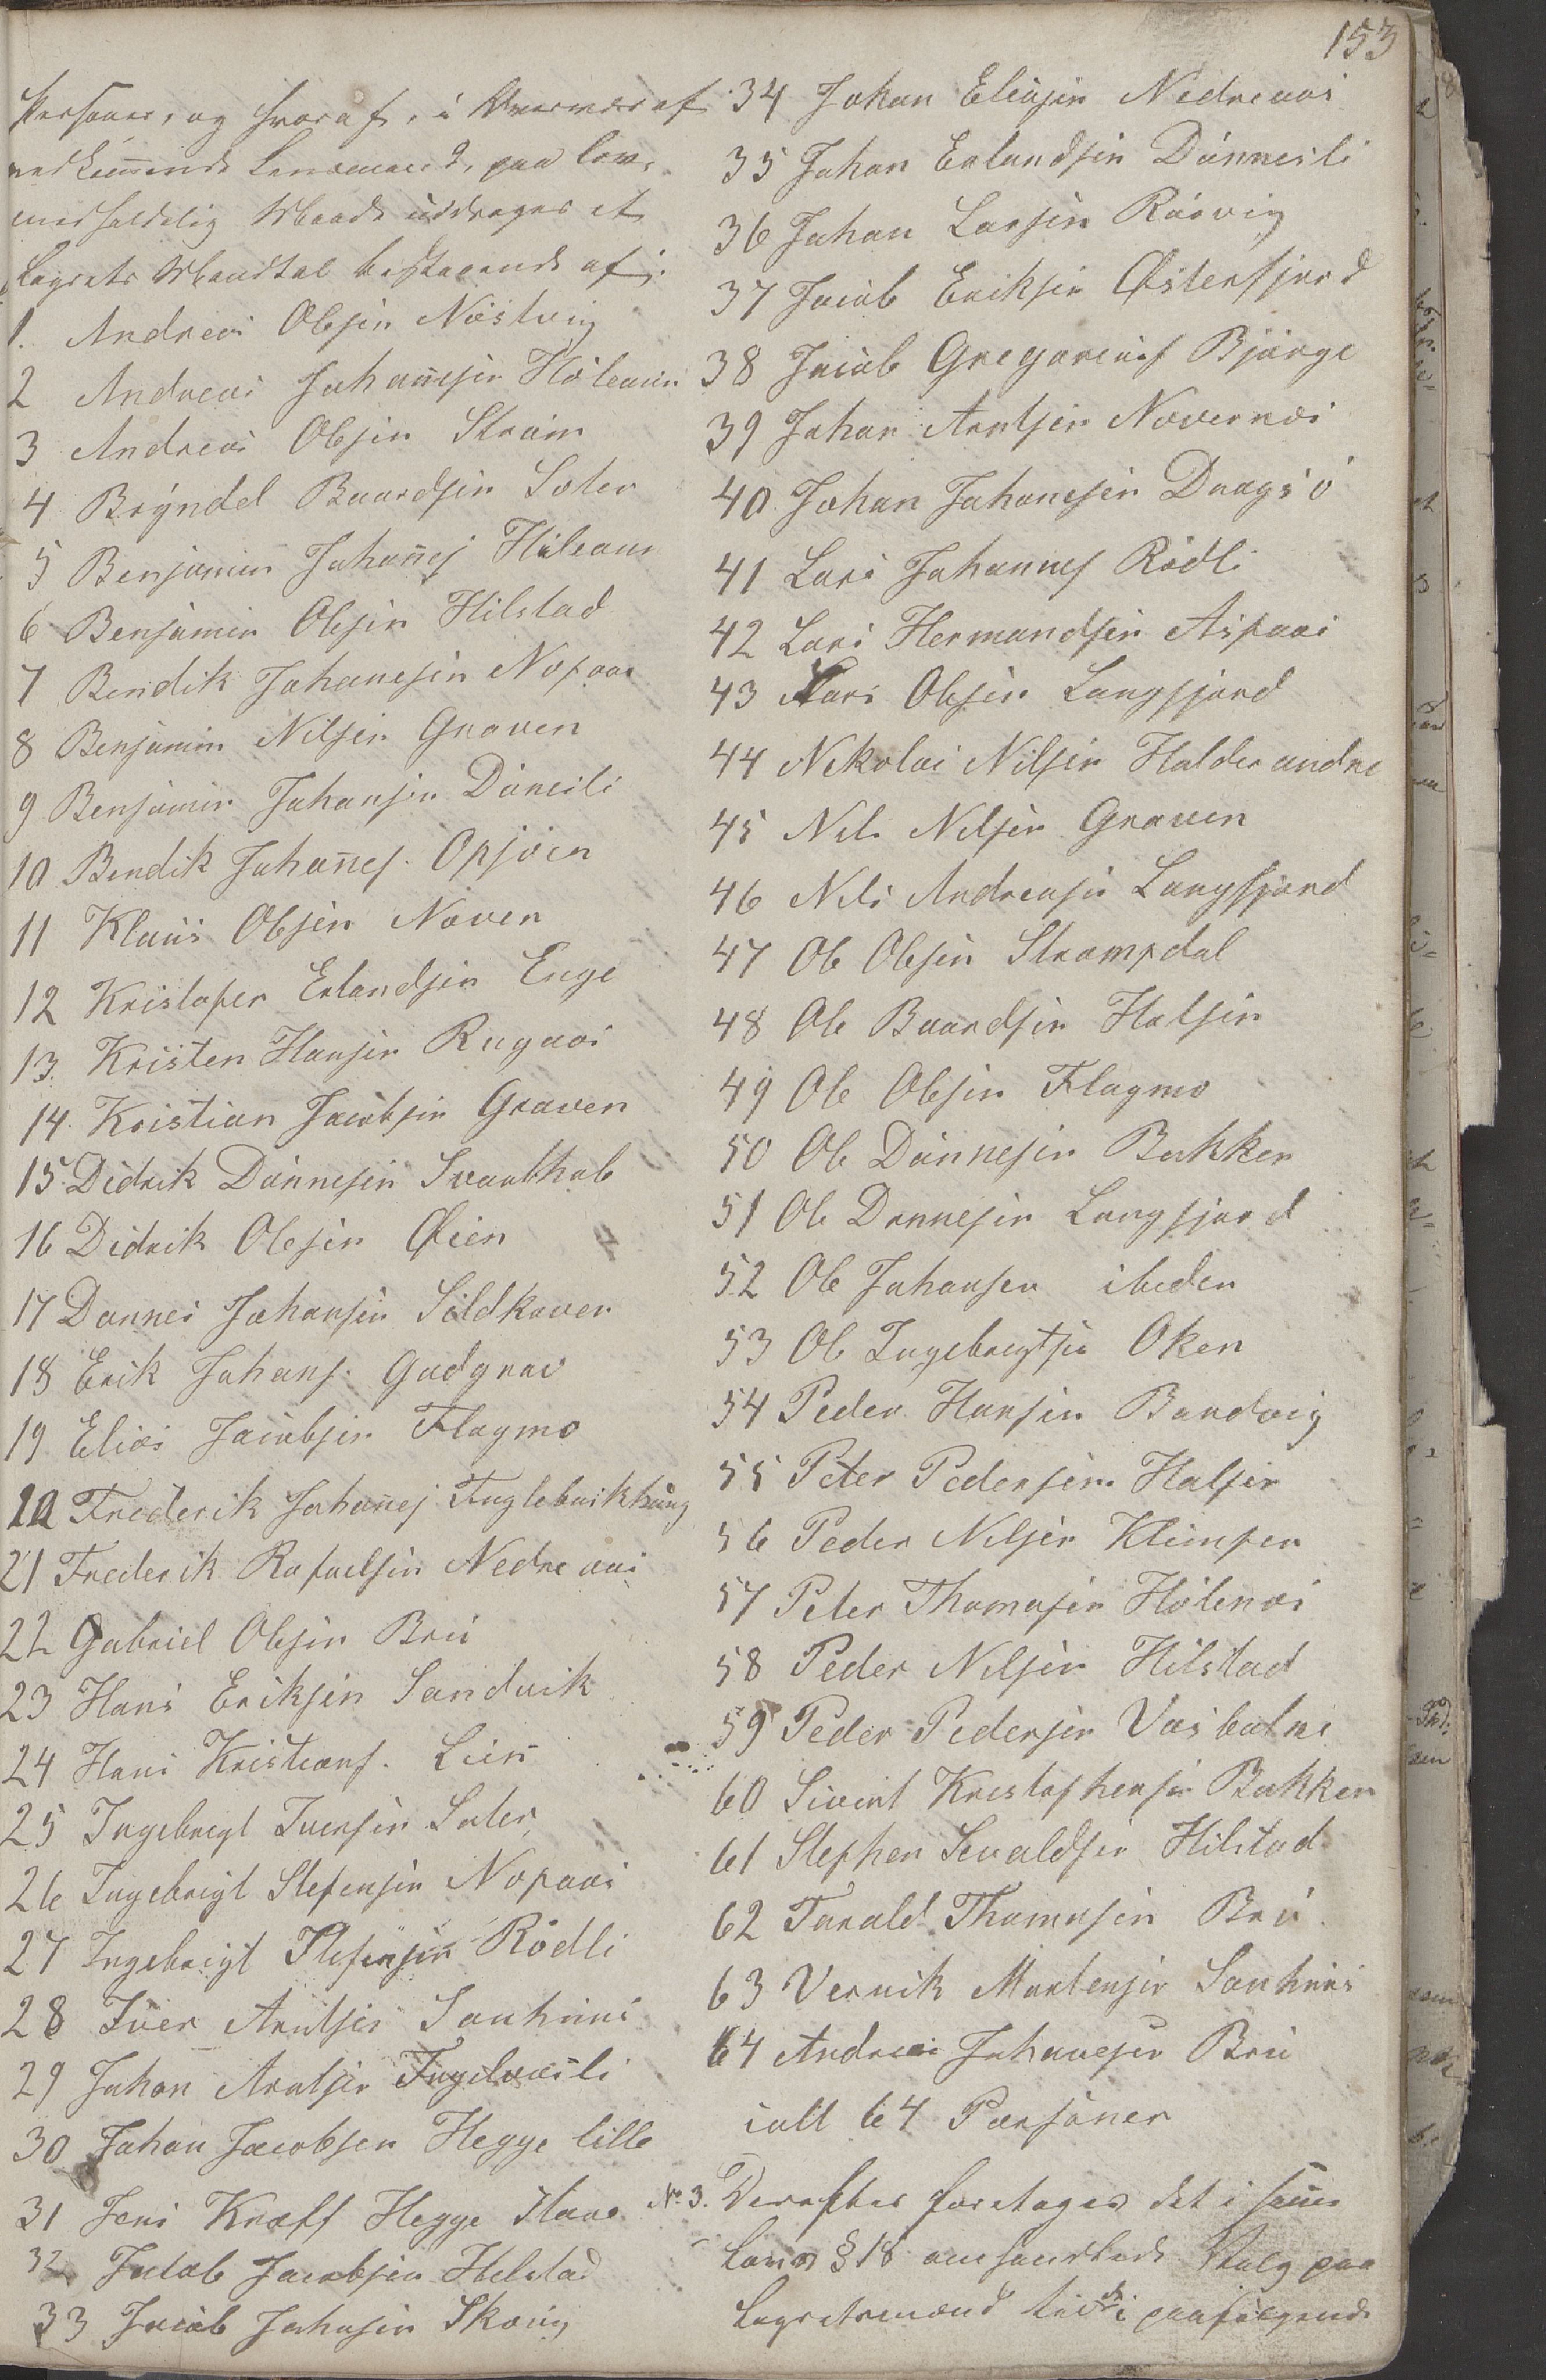 153
Personer, og hvoraf, i Overværelse af
vedkommende Lensmand, paa lov-
medholdelig Maade uddrages et
Lagrets Mandtal bestaaende af:
1. Andreas Olsen Nøstvig
2 Andreas Johannesen Hölenæs
3 Andreas Olsen Strøm
4 Bryndel Baardsen Sæter
5 Benjamin Johannes Hölenæs
6 Benjamin Olsen Hilstad
7 Bendik Johannesen Nøpaas
8 Benjamin Nilsen Graven
9 Benjamin Johansen Dönesli
10 Bendik Johannes. Opjöen
11 Klaus Olsen Noven
12 Kristofer Erlandsen Enge
13. Kristen Hansen Rugaas
14. Kristian Jacobsen Graven
15 Didrik Dönnesen Svarthal
16 Didrik Olesen Øien
17 Dønnes Johansen Sildkaven
18 Erik Johans. Gudgrav
19 Elias Jacobsen Flagmo
20 Frederik Johannes Fuglebakhaug
21 Frederik Rafaelsen Nedreaas
22 Gabriel Olsen Brü
23 Hans Eriksen Sandvik
24 Hans Kristians. Lien
25 Ingebrigt Iversen Sæter
26 Ingebrigt Stefensen Nøpaas
27 Ingebrigt Stefensen Rödli
28 Iver Arntsen Sanhuus
29 Johan Arntsen Fugelaasli
30 Johan Jacobsen Hegge lille
31 Jens Kroeff Hegge store
32 Jacob Jacobsen Helstad
33 Jacob Johnsen Skovig
34 Johan Eliasen Nedreaas
35 Johan Erlandsen Dönnesli
36 Johan Larsen Rösvig
37 Jacob Eriksen Østerfjord
38 Jacob Gregorius Björge
39 Johan Arntsen Novernæs
40 Johan Johanesen Dragsö
41 Lars Johannes Rödli
42 Lars Hermandsen Aspaas
43 Lars Olsen Langfjord
44 Nikolai Nilsen Halderandre
45 Nils Nilsen Graven
46 Nils Andreasen Langfjord
47 Ole Olsen Strompdal
48 Ole Baardsen Halsen
49 Ole Olsen Flagmo
50 Ole Dönnesen Bakken
51 Ole Dønnesen Langfjord
52 Ole Johansen ibeden
53 Ole Ingebregtsen Oken
54 Peder Hansen Bandvig
55 Peter Pedersen Halsen
56 Peder Nilsen Klimpen
57 Peter Thomasen Hölenæs
58 Peder Nilsen Hilstad
59 Peder Pedersen Vasbotne
60 Sivert Kristophersen Bakken
61 Stephen Sevaldsen Hilstad
62 Tarald Thomasen Brü
63 Vernik Mortensen Sanhuus
64 Andreas Johanesen Brü
iall 64 Personer
No 3. Derefter foretoges det i samme
Lovs § 18 omhandlede Valg paa
Lagretsmænd til de i paafölgende